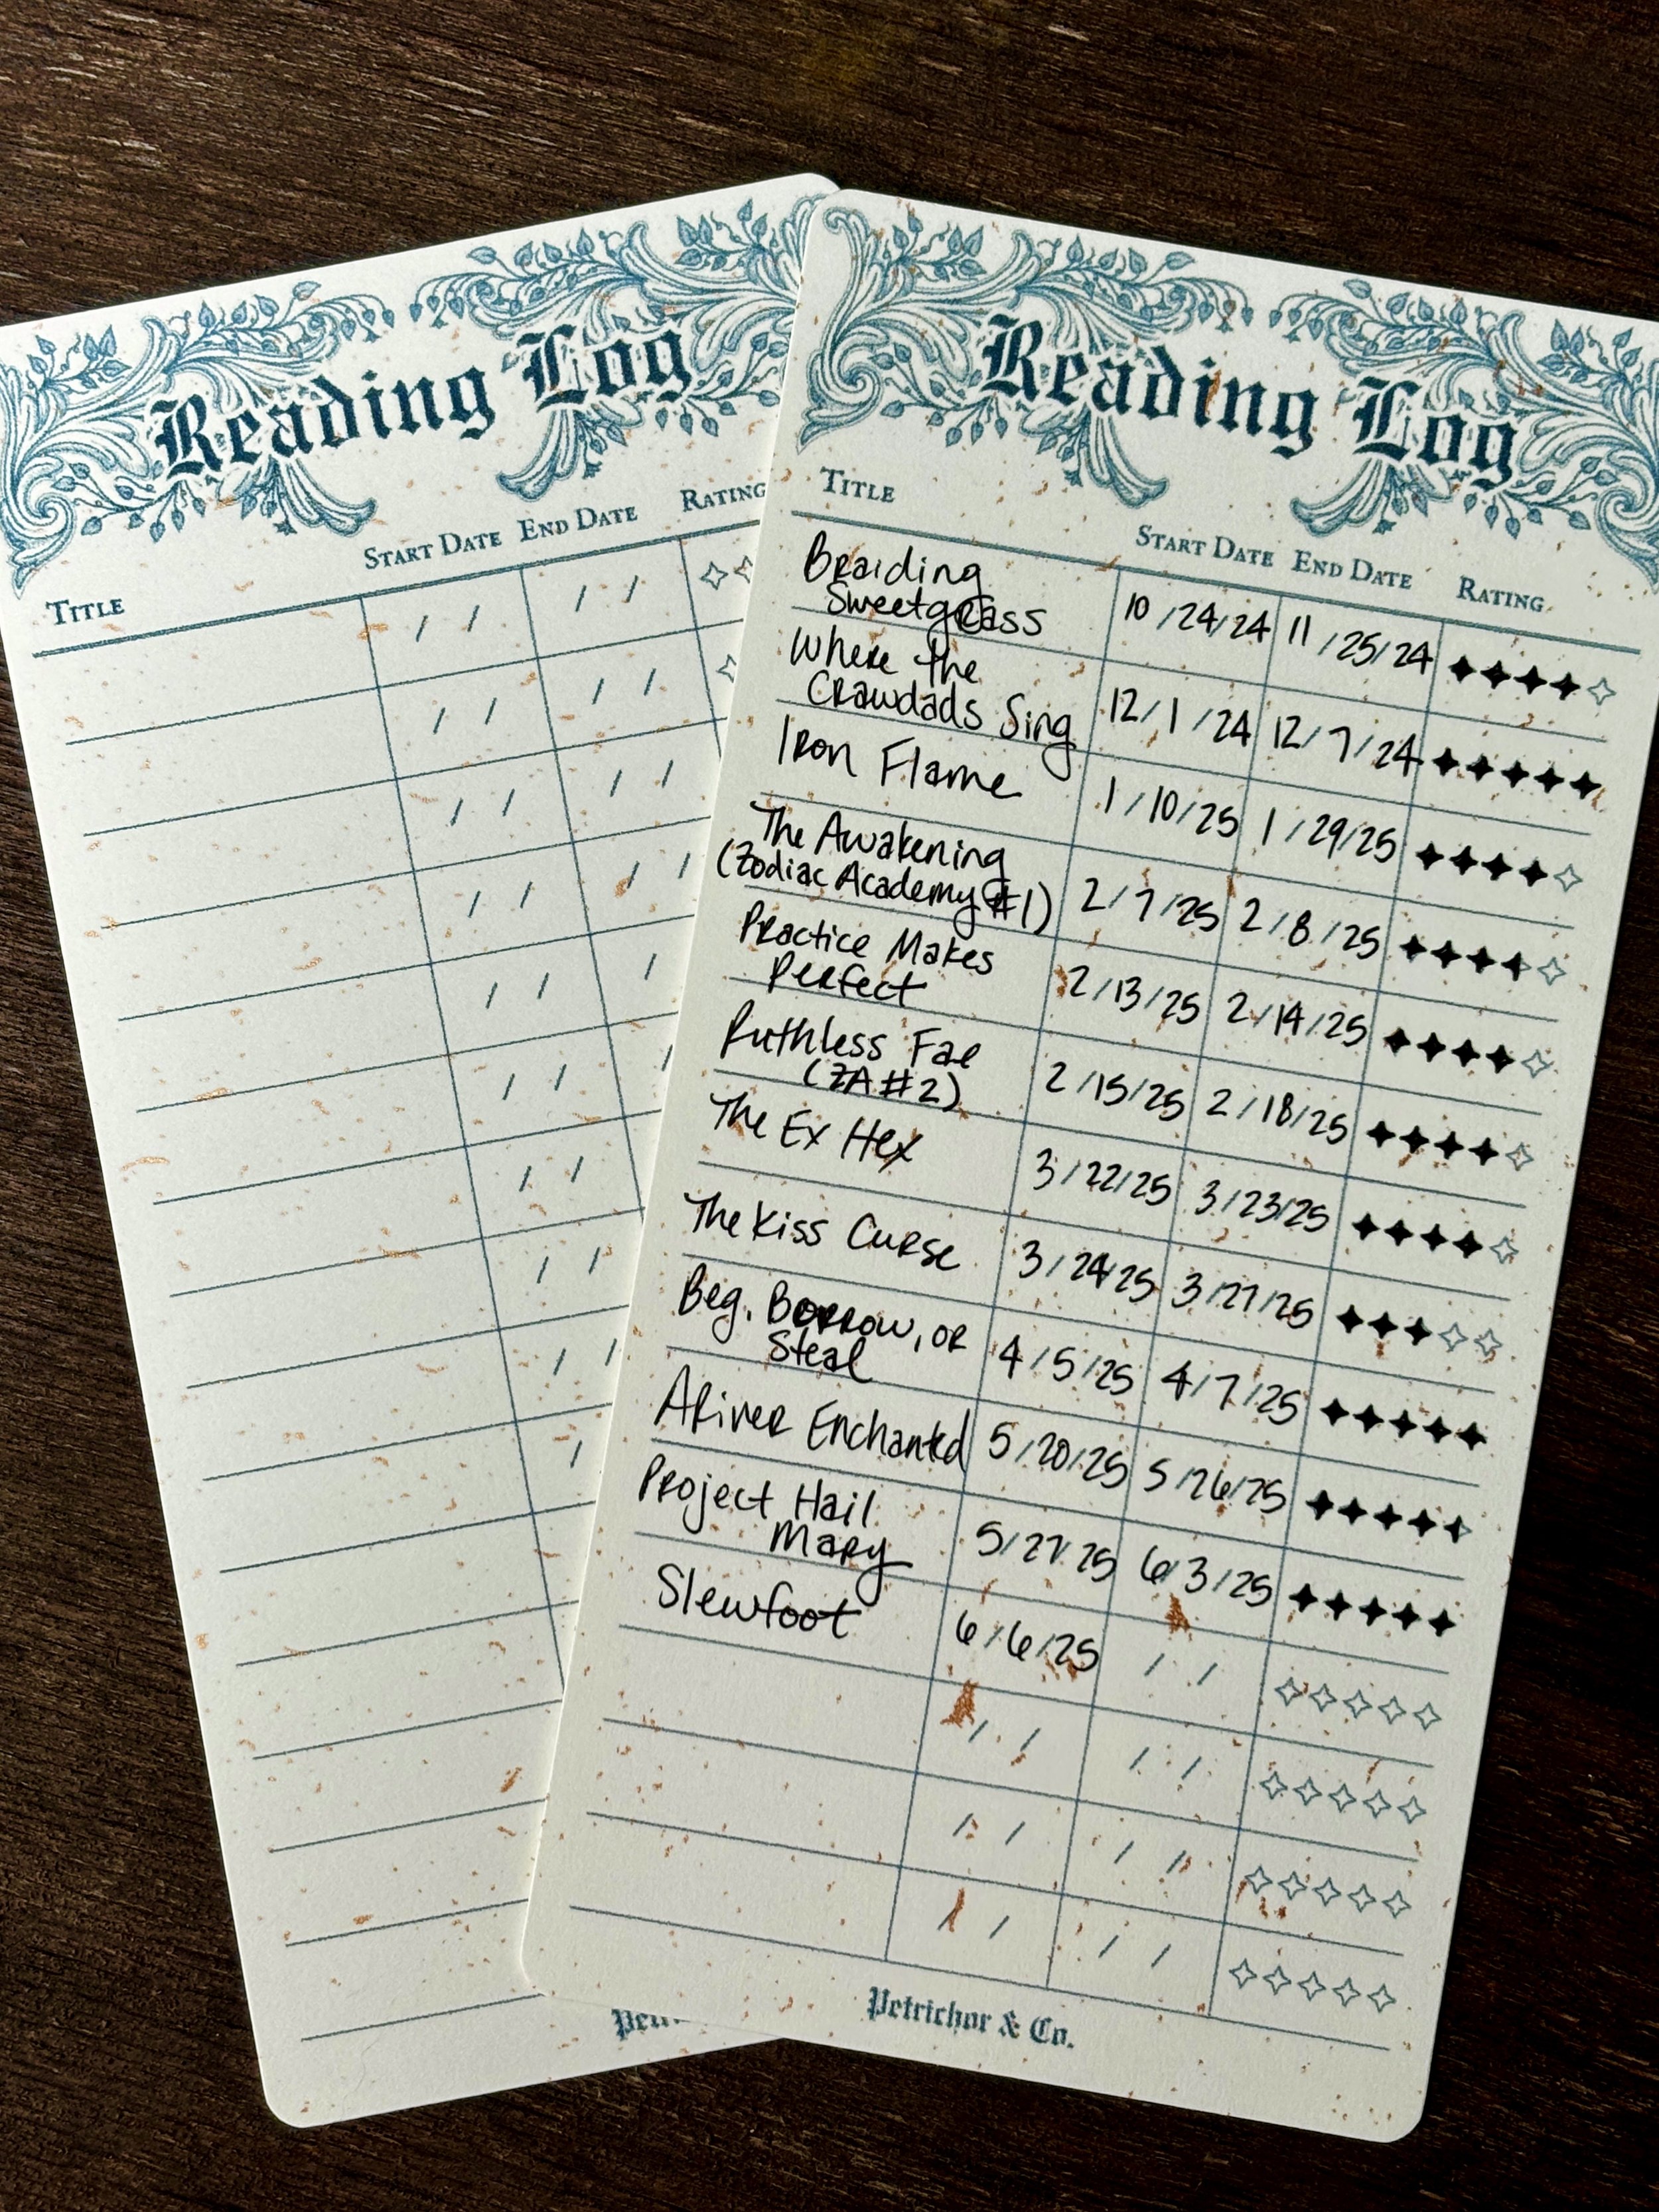 Reading Log
TITLE START DATE END DATE RATING
/ / / /
/ / / /
/ / / /
/ / / /
/ / /
/ / /
/ /
/ / / /
/ / /
/
Reading Log
TITLE START DATE END DATE RATING
Braiding
Sweetgrass 10/24/24 11/25/24
Where the
Crawdads Sing 12/1/24 12/7/24
Iron Flame 1/10/25 1/29/25
The Awakening
(Zodiac Academy #1) 2/7/25 2/8/25
Practice Makes
Perfect 2/13/25 2/14/25
Ruthless Fae
(ZA #2) 2/15/25 2/18/25
The Ex Hex 3/22/25 3/23/25
The Kiss Curse 3/24/25 3/27/25
Beg, Borrow, or
Steal 4/5/25 4/7/25
A River Enchanted 5/20/25 5/26/25
Project Hail
Mary 5/27/25 6/3/25
Slewfoot 6/6/25 / /
/ / / /
/ / / /
/ / / /
Petrichor & Co.